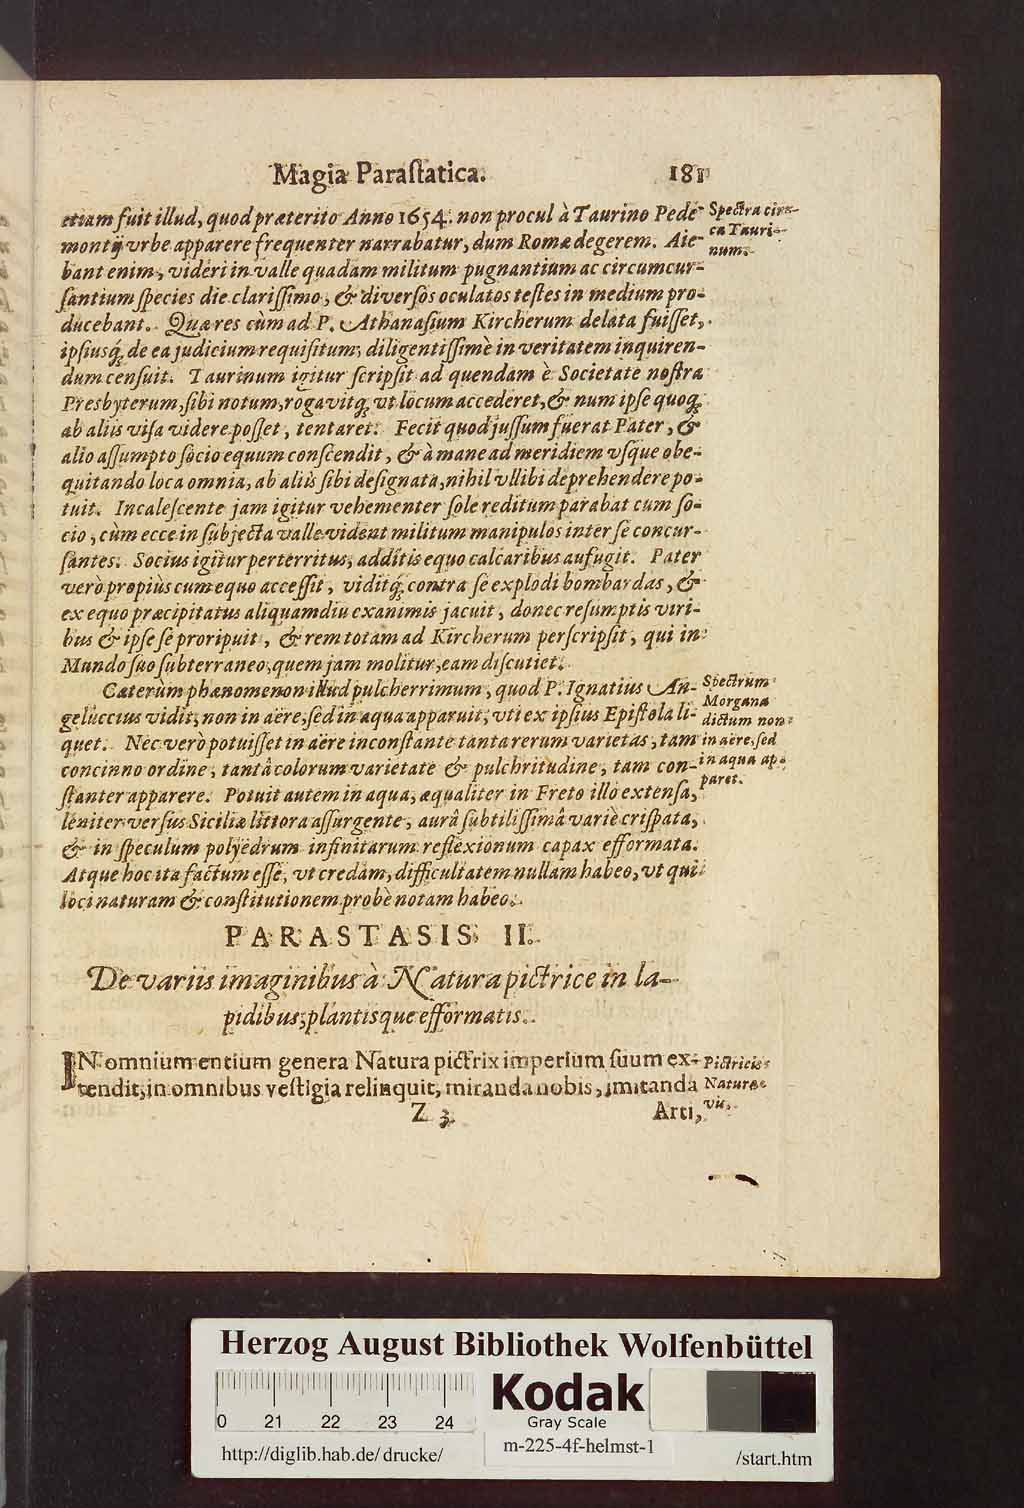 Magia Paraſtatica. 181
etiam fuit illud, quod præterito Anno 1654. non procul à Taurino Pede-
montij vrbe apparere frequenter narrabatur, dum Romæ degerem. Aie-
bant enim, videri in valle quadam militum pugnantium ac circumcur-
ſantium ſpecies die clariſſimo, & diverſos oculatos teſtes in medium pro-
ducebant. Quæ res cùm ad P. Athanaſium Kircherum delata fuiſſet,
ipſiusq́; de ea judicium requiſitum, diligentiſſimè in veritatem inquiren-
dum cenſuit. Taurinum igitur ſcripſit ad quendam è Societate noſtra
Presbyterum, ſibi notum, rogavitq; vt locum accederet, & num ipſe quoq;
ab aliis viſa videre poſſet, tentaret. Fecit quod juſſum fuerat Pater, &
alio aſſumpto ſocio equum conſcendit, & à mane ad meridiem vſque obe-
quitando loca omnia, ab aliis ſibi deſignata, nihil vllibi deprehendere po-
tuit. Incaleſcente jam igitur vehementer ſole reditum parabat cum ſo-
cio, cùm ecce in ſubjecta valle vident militum manipulos inter ſe concur-
ſantes. Socius igitur perterritus, additis equo calcaribus aufugit. Pater
verò propiùs cum equo acceſſit, viditq́; contra ſe explodi bombardas, &
ex equo præcipitatus aliquamdiu exanimis jacuit, donec reſumptis viri-
bus & ipſe ſe proripuit, & rem totam ad Kircherum perſcripſit, qui in
Mundo ſuo ſubterraneo, quem jam molitur, eam diſcutiet.
Spectra cir-
ca Tauri-
num.
Cæterùm phænomenon illud pulcherrimum, quod P. Ignatius An-
geluccius vidit, non in aëre, ſed in aqua apparuit, vti ex ipſius Epiſtola li-
quet. Nec verò potuiſſet in aëre inconſtante tanta rerum varietas, tam
concinno ordine, tantâ colorum varietate & pulchritudine, tam con-
ſtanter apparere. Potuit autem in aqua, æqualiter in Freto illo extenſa,
leniter verſus Siciliæ littora aſſurgente, aurâ ſubtiliſſimâ variè criſpata,
& in ſpeculum polyedrum infinitarum reflexionum capax efformata.
Atque hoc ita factum eſſe, vt credam, difficultatem nullam habeo, vt qui
loci naturam & conſtitutionem probè notam habeo.
Spectrum
Morgana
dictum non
in aëre, ſed
in aqua ap-
paret.
PARASTASIS II.
De variis imaginibus à Natura pictrice in la-
pidibus, plantisque efformatis.
IN omnium entium genera Natura pictrix imperium ſuum ex-
tendit, in omnibus veſtigia relinquit, miranda nobis, imitanda
Pictricis
Naturæ
vis.
Z 3 Arti,
Herzog August Bibliothek Wolfenbüttel
0 21 22 23 24
Kodak
Gray Scale
http://diglib.hab.de/drucke/
m-225-4f-helmst-1
/start.htm